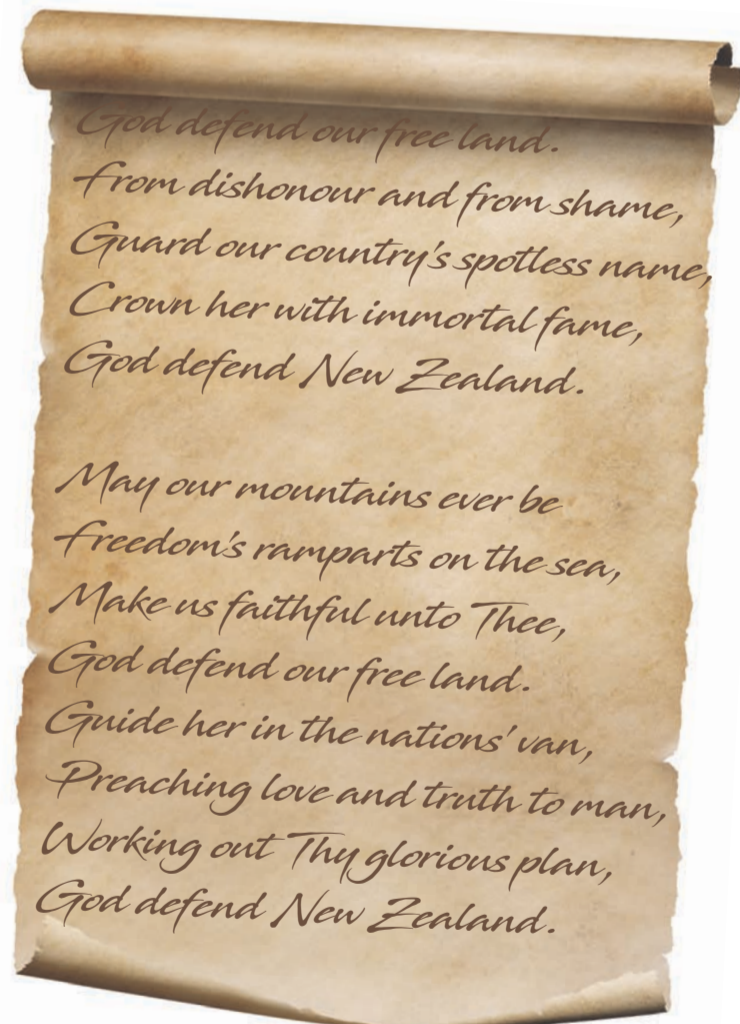 God defend our free land.
From dishonour and from shame,
Guard our country's spotless name,
Crown her with immortal fame,
God defend New Zealand.
May our mountains ever be
Freedom's ramparts on the sea,
Make us faithful unto Thee,
God defend our free land.
Guide her in the nations' van,
Preaching love and truth to man,
Working out Thy glorious plan,
God defend New Zealand.